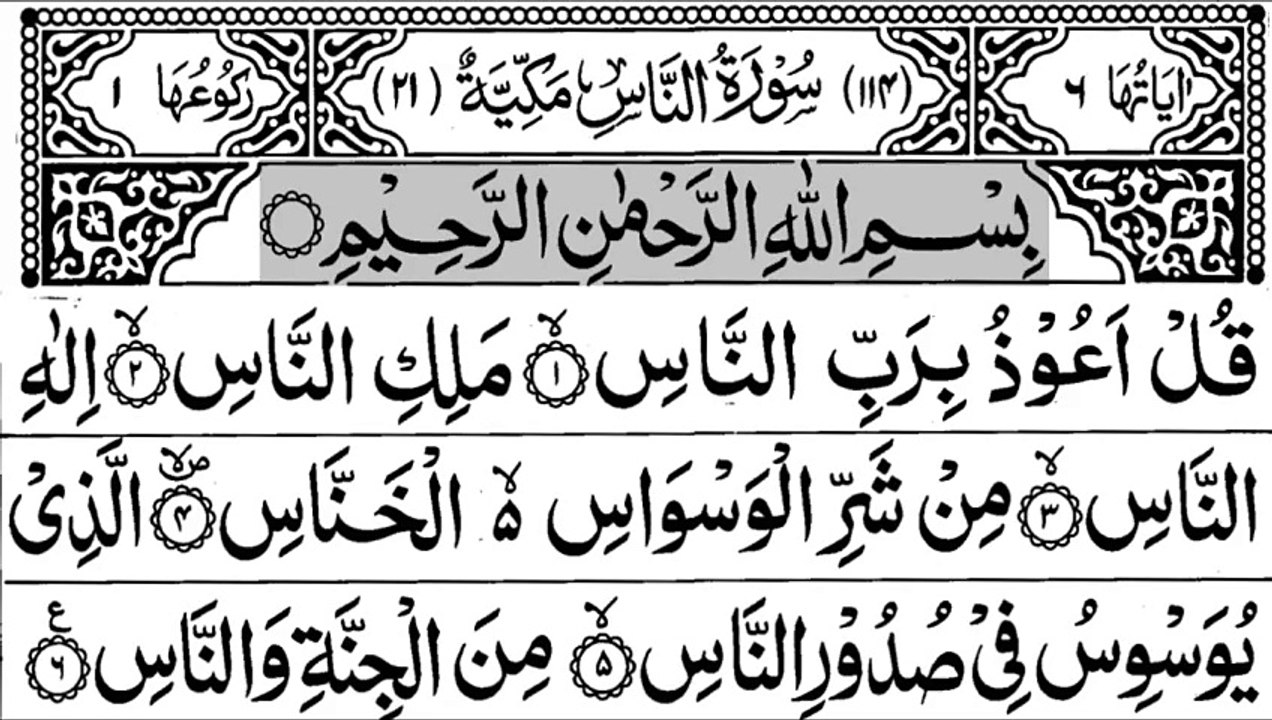 اٰيَاتُهَا ٦ (۱۱۴) سُوْرَةُ النَّاسِ مَكِّيَّةٌ (۲۱) رَكُوْعُهَا ۱
بِسْمِ اللّٰهِ الرَّحْمٰنِ الرَّحِيْمِ
قُلْ اَعُوْذُ بِرَبِّ النَّاسِ ۙ‏﴿۱﴾ مَلِكِ النَّاسِ ۙ‏﴿۲﴾ اِلٰهِ
النَّاسِ ۙ‏﴿۳﴾ مِنْ شَرِّ الْوَسْوَاسِ ۵ۙ الْخَنَّاسِ ۪ۙ‏﴿۴﴾ الَّذِىْ
يُوَسْوِسُ فِىْ صُدُوْرِ النَّاسِ ۙ‏﴿۵﴾ مِنَ الْجِنَّةِ وَالنَّاسِ ع﴿٦﴾